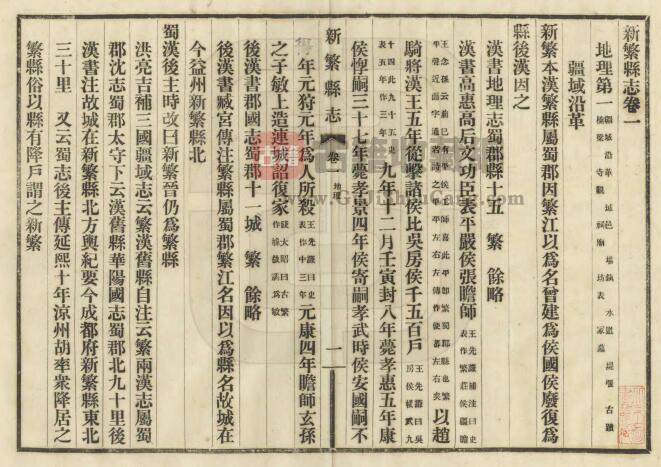 新繁縣志卷一
地理第一 疆域沿革 城邑 場鎮 水道 堤堰 古蹟
橋梁 寺觀 祠廟 坊表 冢墓
疆域沿革
新繁本漢繁縣屬蜀郡因繁江以爲名曾建爲侯國侯廢復爲
縣後漢因之
漢書地理志蜀郡縣十五 繁 餘略
漢書高惠高后文功臣表平嚴侯張瞻師 王先謙補注曰史
表作繁莊侯疆瞻
以趙
騎將漢王五年從擊諸侯比吳房侯千五百戶 王先謙曰吳
房侯楊武九
九年十二月壬寅封八年薨孝惠五年康
侯惸嗣三十七年薨孝景四年侯寄嗣孝武時侯安國嗣不
得 年元狩元年爲人所殺 王先謙曰史
表作中三年
元康四年瞻師玄孫
之子敏上造連城詔復家 錢大昭曰古繁
後漢書郡國志蜀郡十一城 繁 餘略
後漢書臧宮傳注繁縣屬蜀郡繁江名因以爲縣名故城在
今益州新繁縣北
蜀漢後主時改曰新繁晉仍爲繁縣
洪亮吉補三國疆域志云繁漢舊縣自注云繁兩漢志屬蜀
郡沈志蜀郡太守下云漢舊縣華陽國志蜀郡北九十里後
漢書注故城在新繁縣北方輿紀要今成都府新繁縣東北
三十里 又云蜀志後主傳延熙十年涼州胡率衆降居之
繁縣俗以縣有降戶謂之新繁
新繁縣志
卷一
地理
一